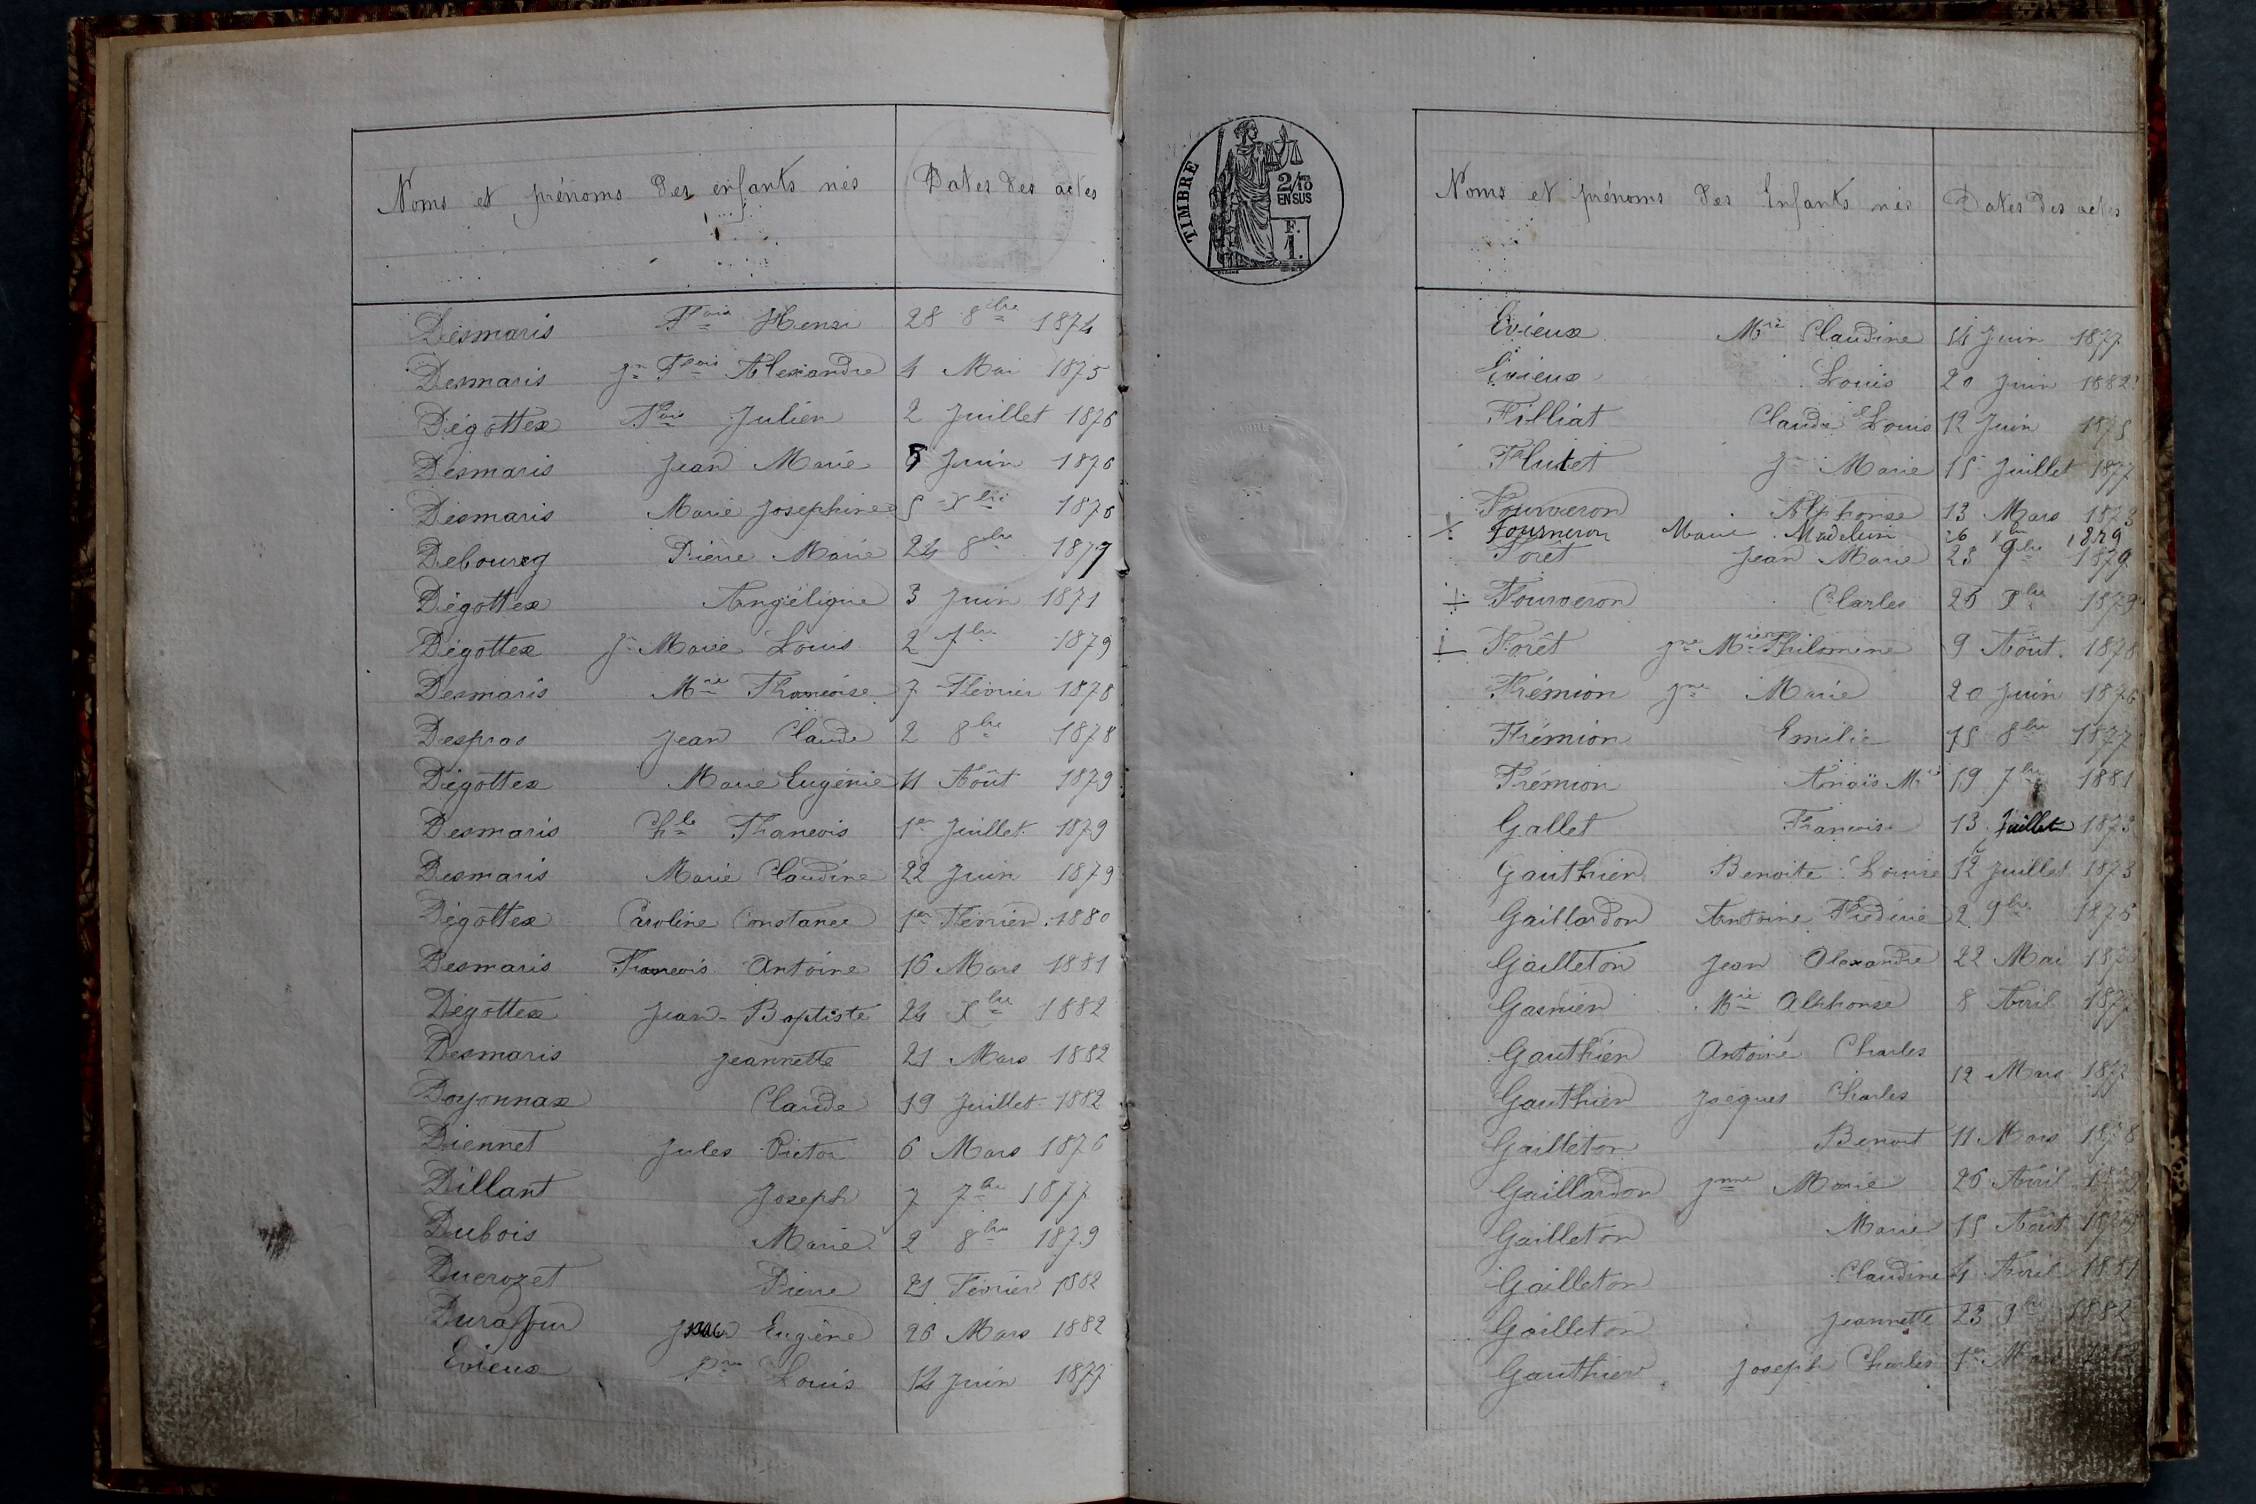 Noms et prénoms des enfants nés Dates des actes
Desmaris Fois Henri 28 8bre 1874
Desmaris Jn Fois Alexandre 4 Mai 1875
Dégottex Fois Julien 2 Juillet 1876
Desmaris Jean Marie 8 Juin 1876
Desmaris Marie Josephine 5 Xbre 1876
Debourg Pierre Marie 24 8bre 1877
Dégottex Angélique 3 Juin 1871
Dégottex Jn Marie Louis 2 7bre 1879
Desmaris Mrie Françoise 7 Février 1878
Despras Jean Claude 2 8bre 1878
Dégottex Marie Eugénie 11 Août 1879
Desmaris Chle François 1er Juillet 1879
Desmaris Marie Claudine 22 Juin 1879
Dégottex Caroline Constance 1er Février 1880
Desmaris François Antoine 16 Mars 1881
Dégottex Jean-Baptiste 24 Xbre 1882
Desmaris Jeannette 21 Mars 1882
Doyonnax Claude 19 Juillet 1882
Diennet Jules Victor 6 Mars 1876
Dillant Joseph 7 7bre 1877
Dubois Marie 2 8bre 1879
Ducrozet Pierre 21 Février 1882
Durafour Eugène 26 Mars 1882
Evieux Louis 14 Juin 1877
TIMBRE
2/10
EN SUS
F.
1.
Noms et prénoms des Enfants nés Dates des actes
Evieux Mrie Claudine 14 Juin 1877
Evieux Louis 20 Juin 1882
Filliat Claude Louis 12 Juin 1875
Flutet Jn Marie 15 Juillet 1877
Fourneron Alphonse 13 Mars 1873
Fourneron Marie Madelein 26 Xbre 1879
Forêt Jean Marie 28 9bre 1879
Fourneron Charles 25 1879
Forêt Jne Mrie Philomène 9 Août 1878
Frémion Jne Marie 20 Juin 1876
Frémion Emilie 15 8bre 1877
Frémion Anaïs Mie 19 7bre 1881
Gallet François 13 Juillet 1873
Gauthier Benoite Louise 12 Juillet 1873
Gaillardon Antoine Fréderic 2 9bre 1875
Gailleton Jean Alexandre 22 Mai
Gasnier Mie Alphonse 8 Avril 1877
Gauthier Antoine Charles
12 Mars 1877
Gauthier Jacques Charles
Gailleton Benoit 11 Mars 1878
Gaillardon Jnne Marie 26 Avril
Gailleton Marie 15 Août 1879
Gailleton Claudine 4 Avril 1881
Gailleton Jeannette 23 9bre 1882
Gauthier Joseph Charles 1er Mars